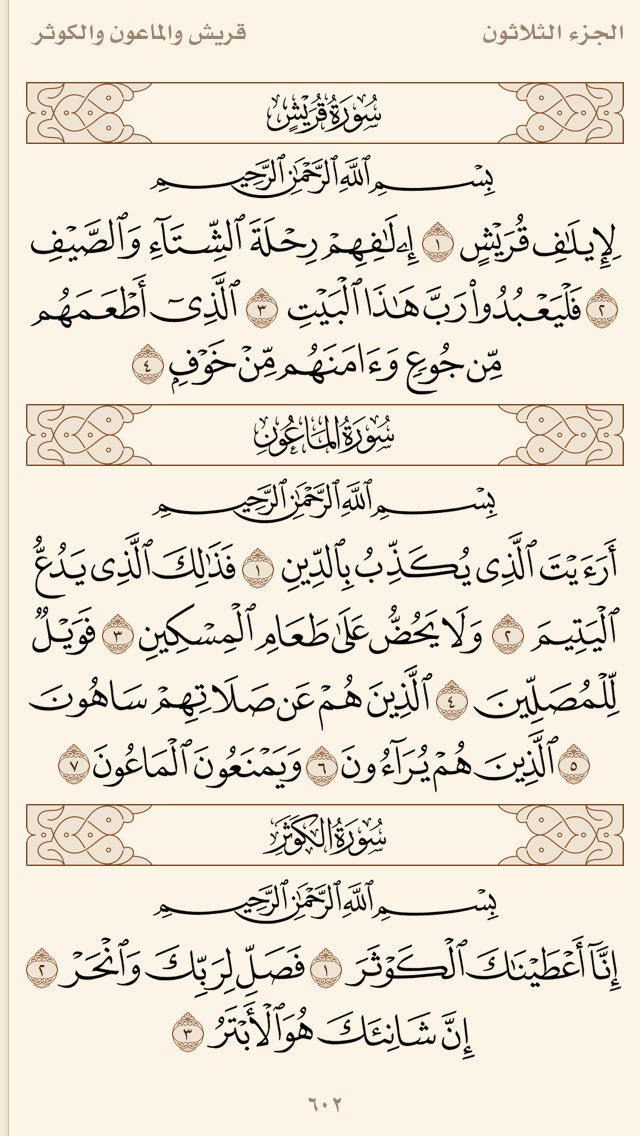 الجزء الثلاثون
قريش والماعون والكوثر
سُورَةُ قُرَيْشٍ
بِسْمِ ٱللَّهِ ٱلرَّحْمَٰنِ ٱلرَّحِيمِ
لِإِيلَٰفِ قُرَيْشٍ ١ إِۦلَٰفِهِمْ رِحْلَةَ ٱلشِّتَآءِ وَٱلصَّيْفِ
٢ فَلْيَعْبُدُوا۟ رَبَّ هَٰذَا ٱلْبَيْتِ ٣ ٱلَّذِىٓ أَطْعَمَهُم
مِّن جُوعٍ وَءَامَنَهُم مِّنْ خَوْفٍۭ ٤
سُورَةُ المَاعُونِ
بِسْمِ ٱللَّهِ ٱلرَّحْمَٰنِ ٱلرَّحِيمِ
أَرَءَيْتَ ٱلَّذِى يُكَذِّبُ بِٱلدِّينِ ١ فَذَٰلِكَ ٱلَّذِى يَدُعُّ
ٱلْيَتِيمَ ٢ وَلَا يَحُضُّ عَلَىٰ طَعَامِ ٱلْمِسْكِينِ ٣ فَوَيْلٌ
لِّلْمُصَلِّينَ ٤ ٱلَّذِينَ هُمْ عَن صَلَاتِهِمْ سَاهُونَ
٥ ٱلَّذِينَ هُمْ يُرَآءُونَ ٦ وَيَمْنَعُونَ ٱلْمَاعُونَ ٧
سُورَةُ الكَوْثَرِ
بِسْمِ ٱللَّهِ ٱلرَّحْمَٰنِ ٱلرَّحِيمِ
إِنَّآ أَعْطَيْنَٰكَ ٱلْكَوْثَرَ ١ فَصَلِّ لِرَبِّكَ وَٱنْحَرْ ٢
إِنَّ شَانِئَكَ هُوَ ٱلْأَبْتَرُ ٣
٦٠٢